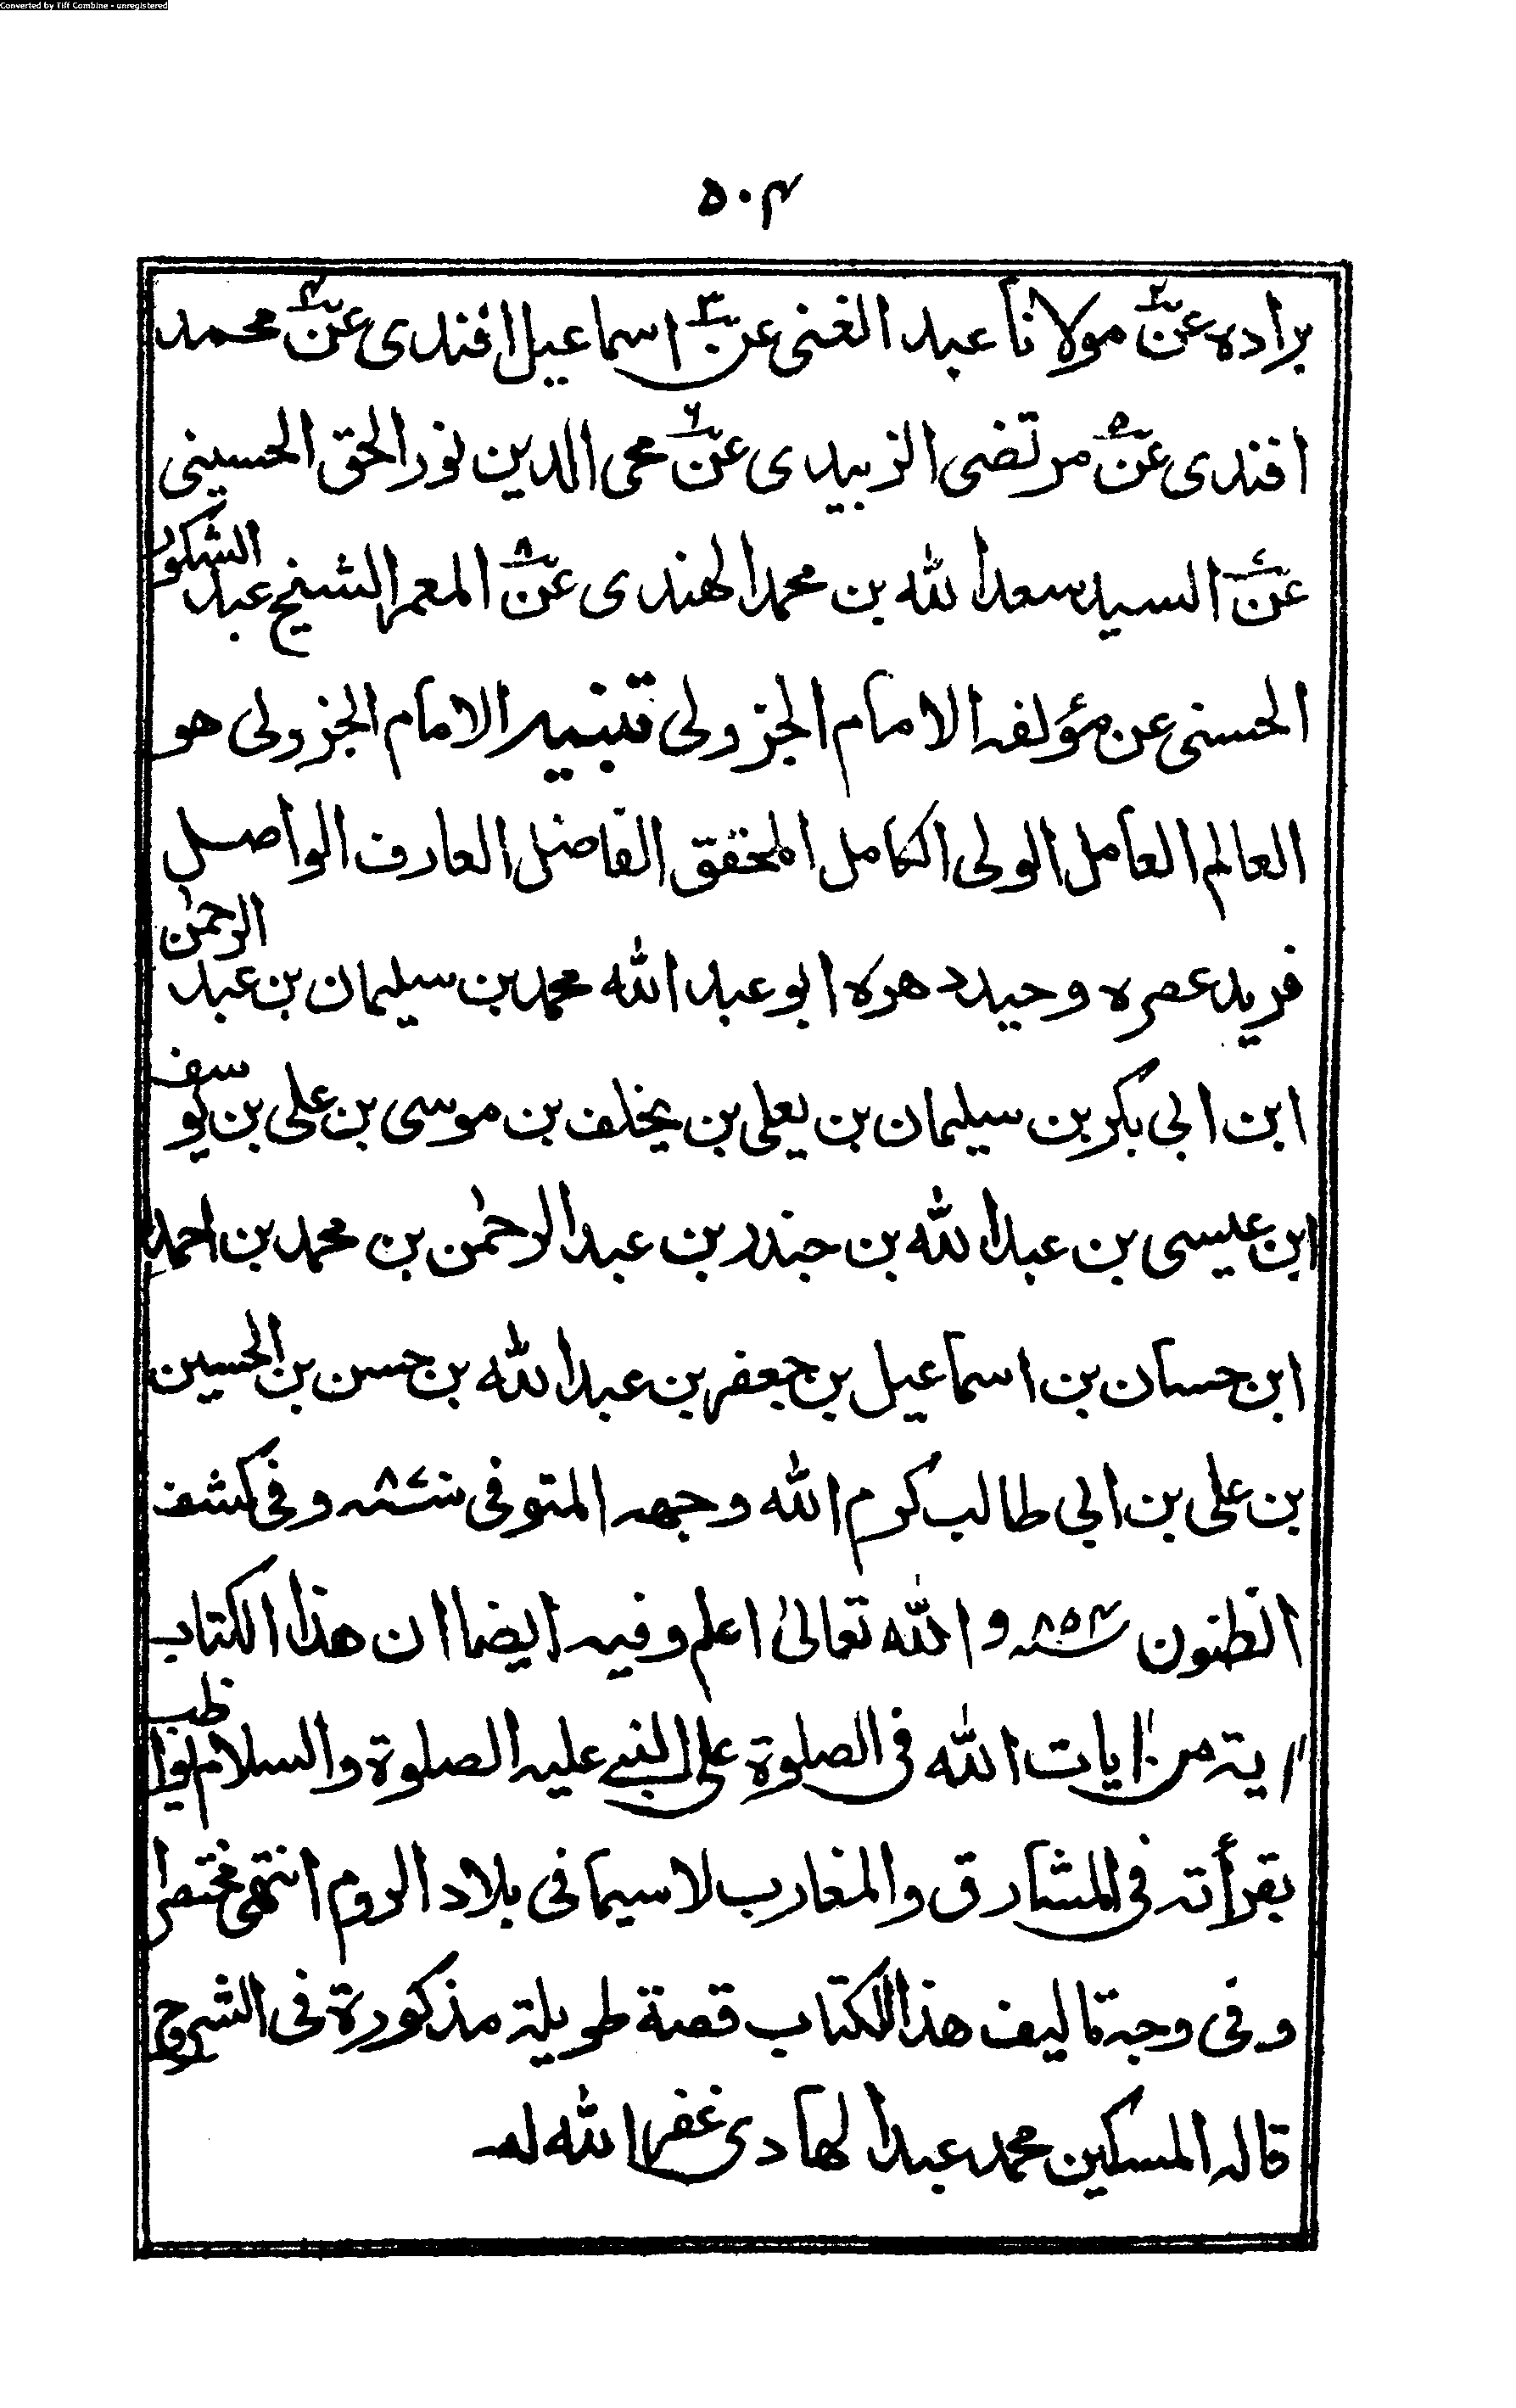 Converted by Tiff Combine - unregistered
۵۰۴
برادہ عن۲ مولانا عبد الغنی عن۳ اسماعیل افندی عن۴ محمد
افندی عن۵ مرتضی الزبیدی عن۶ محی الدین نور الحق الحسینی
عن۷ السید سعد اللہ بن محمد الھندی عن۸ المعمر الشیخ عبد الشکور
الحسنی عن مؤلفہ الامام الجزولی تنبیہ الامام الجزولی ھو
العالم العامل الولی الکامل المحقق الفاضل العارف الواصل
فرید عصرہ وحید دھرہ ابو عبد اللہ محمد بن سلیمان بن عبد الرحمٰن
ابن ابی بکر بن سلیمان بن یعلی بن یخلف بن موسی بن علی بن یوسف
ابن عیسی بن عبد اللہ بن جندر بن عبد الرحمٰن بن محمد بن احمد
ابن حسان بن اسماعیل بن جعفر بن عبد اللہ بن حسن بن الحسین
بن علی بن ابی طالب کرم اللہ وجھہ المتوفی سنۃ وفی کشف
الظنون ۸۵۴ سنۃ واللہ تعالیٰ اعلم وفیہ ایضا ان ھذا الکتاب
اٰیۃ من اٰیات اللہ فی الصلوۃ علی النبی علیہ الصلوۃ والسلام یواظب
بقرأتہ فی المشارق والمغارب لاسیما فی بلاد الروم انتھی مختصرا
وفی وجہ تالیف ھذا الکتاب قصۃ طویلۃ مذکورۃ فی الشروح
قالہ المسکین محمد عبد الھادی غفر اللہ لہ